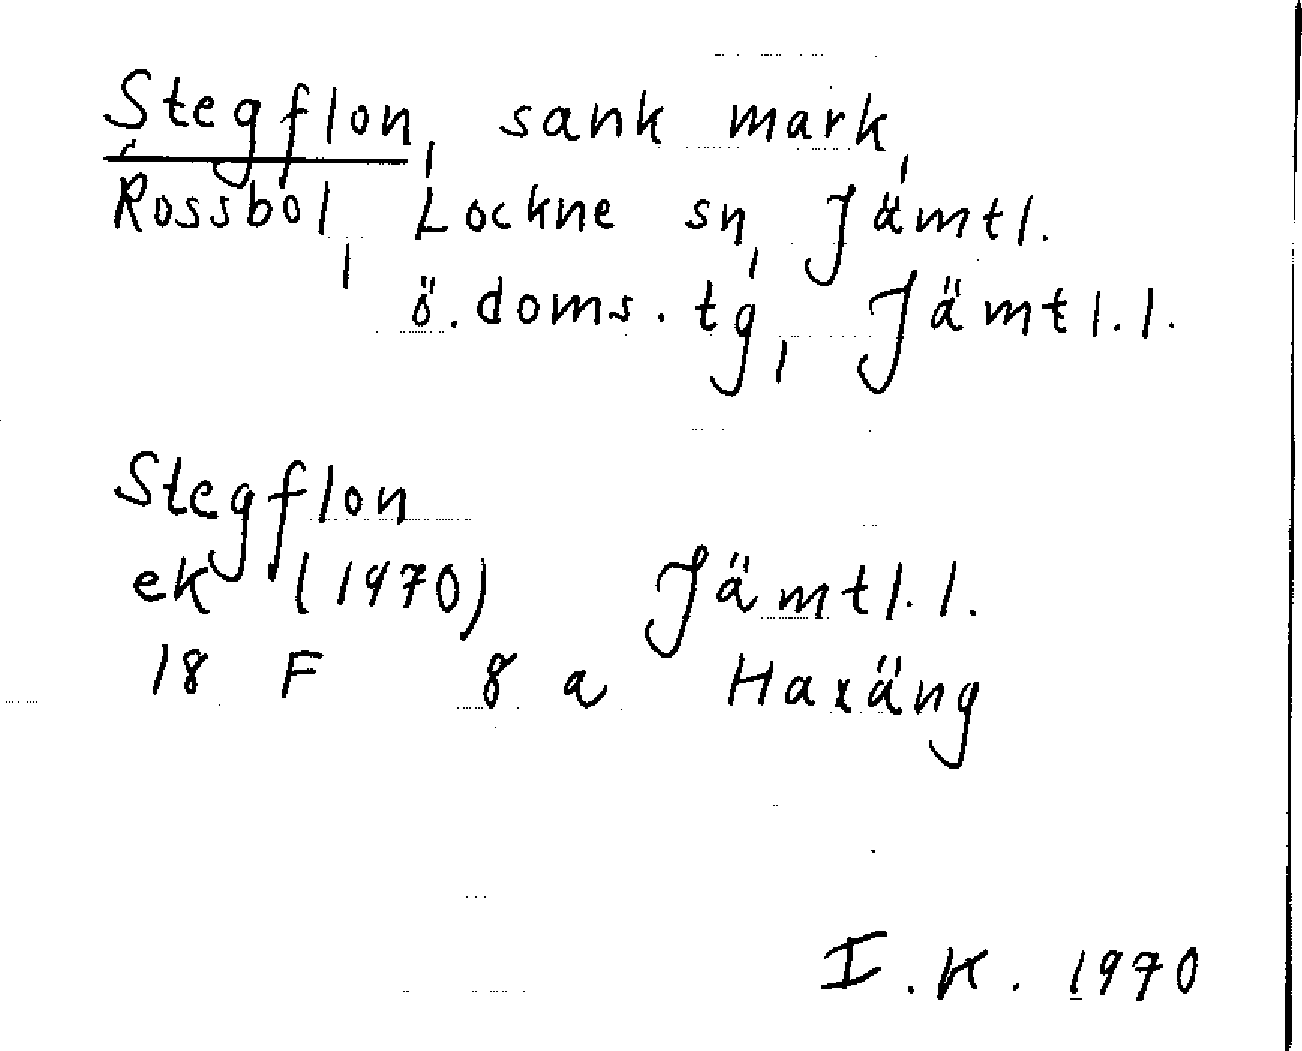 Stegflon, sank mark,
Rossbol, Lockne sn, Jämtl.
ö. doms. tg, Jämtl. l.
Stegflon
ek (1970) Jämtl. l.
18 F 8 a Haxäng
I. K. 1970